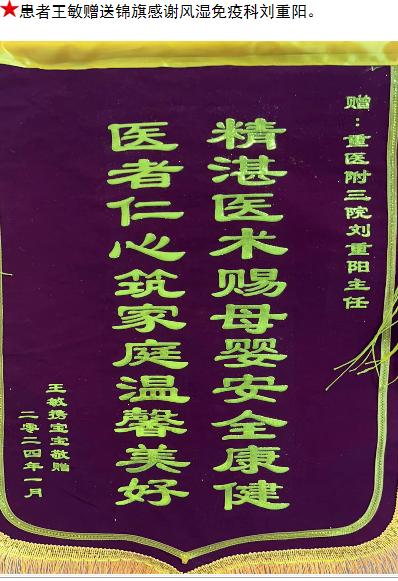 ★患者王敏赠送锦旗感谢风湿免疫科刘重阳。
赠：重医附三院刘重阳主任
精湛医术赐母婴安全康健
医者仁心筑家庭温馨美好
王敏携宝宝敬赠
二零二四年一月